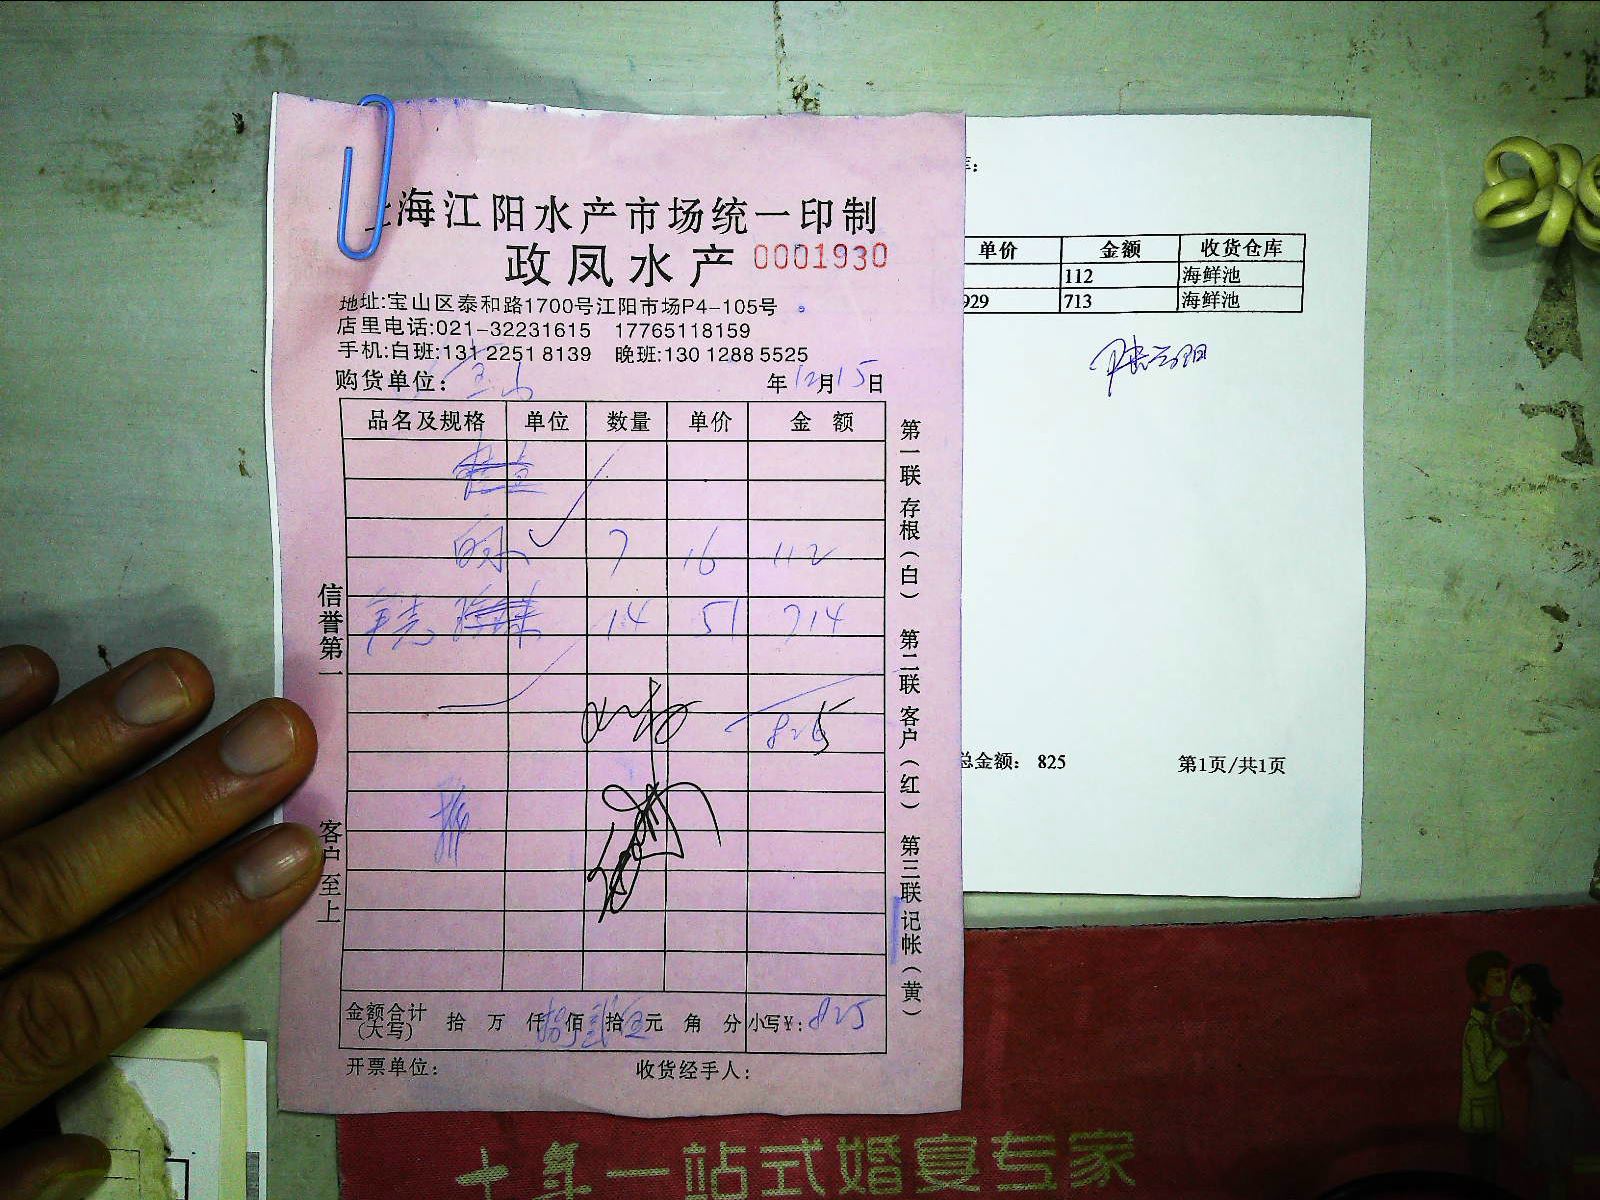 海江阳水产市场统一印制
政凤水产 0001930
地址:宝山区泰和路1700号江阳市场P4-105号
店里电话:021-32231615 17765118159
手机:白班:131 2251 8139 晚班:130 1288 5525
购货单位: 宝山 年12月15日
品名及规格 单位 数量 单价 金额
7 16 112
14 51 714
825
金额合计(大写) 拾 万 仟 捌 佰 贰 拾 伍 元 角 分 小写¥: 825
开票单位: 收货经手人:
信誉第一 客户至上
第一联 存根(白) 第二联 客户(红) 第三联 记帐(黄)
库:
单价 金额 收货仓库
112 海鲜池
929 713 海鲜池
总金额: 825 第1页/共1页
十年一站式婚宴专家